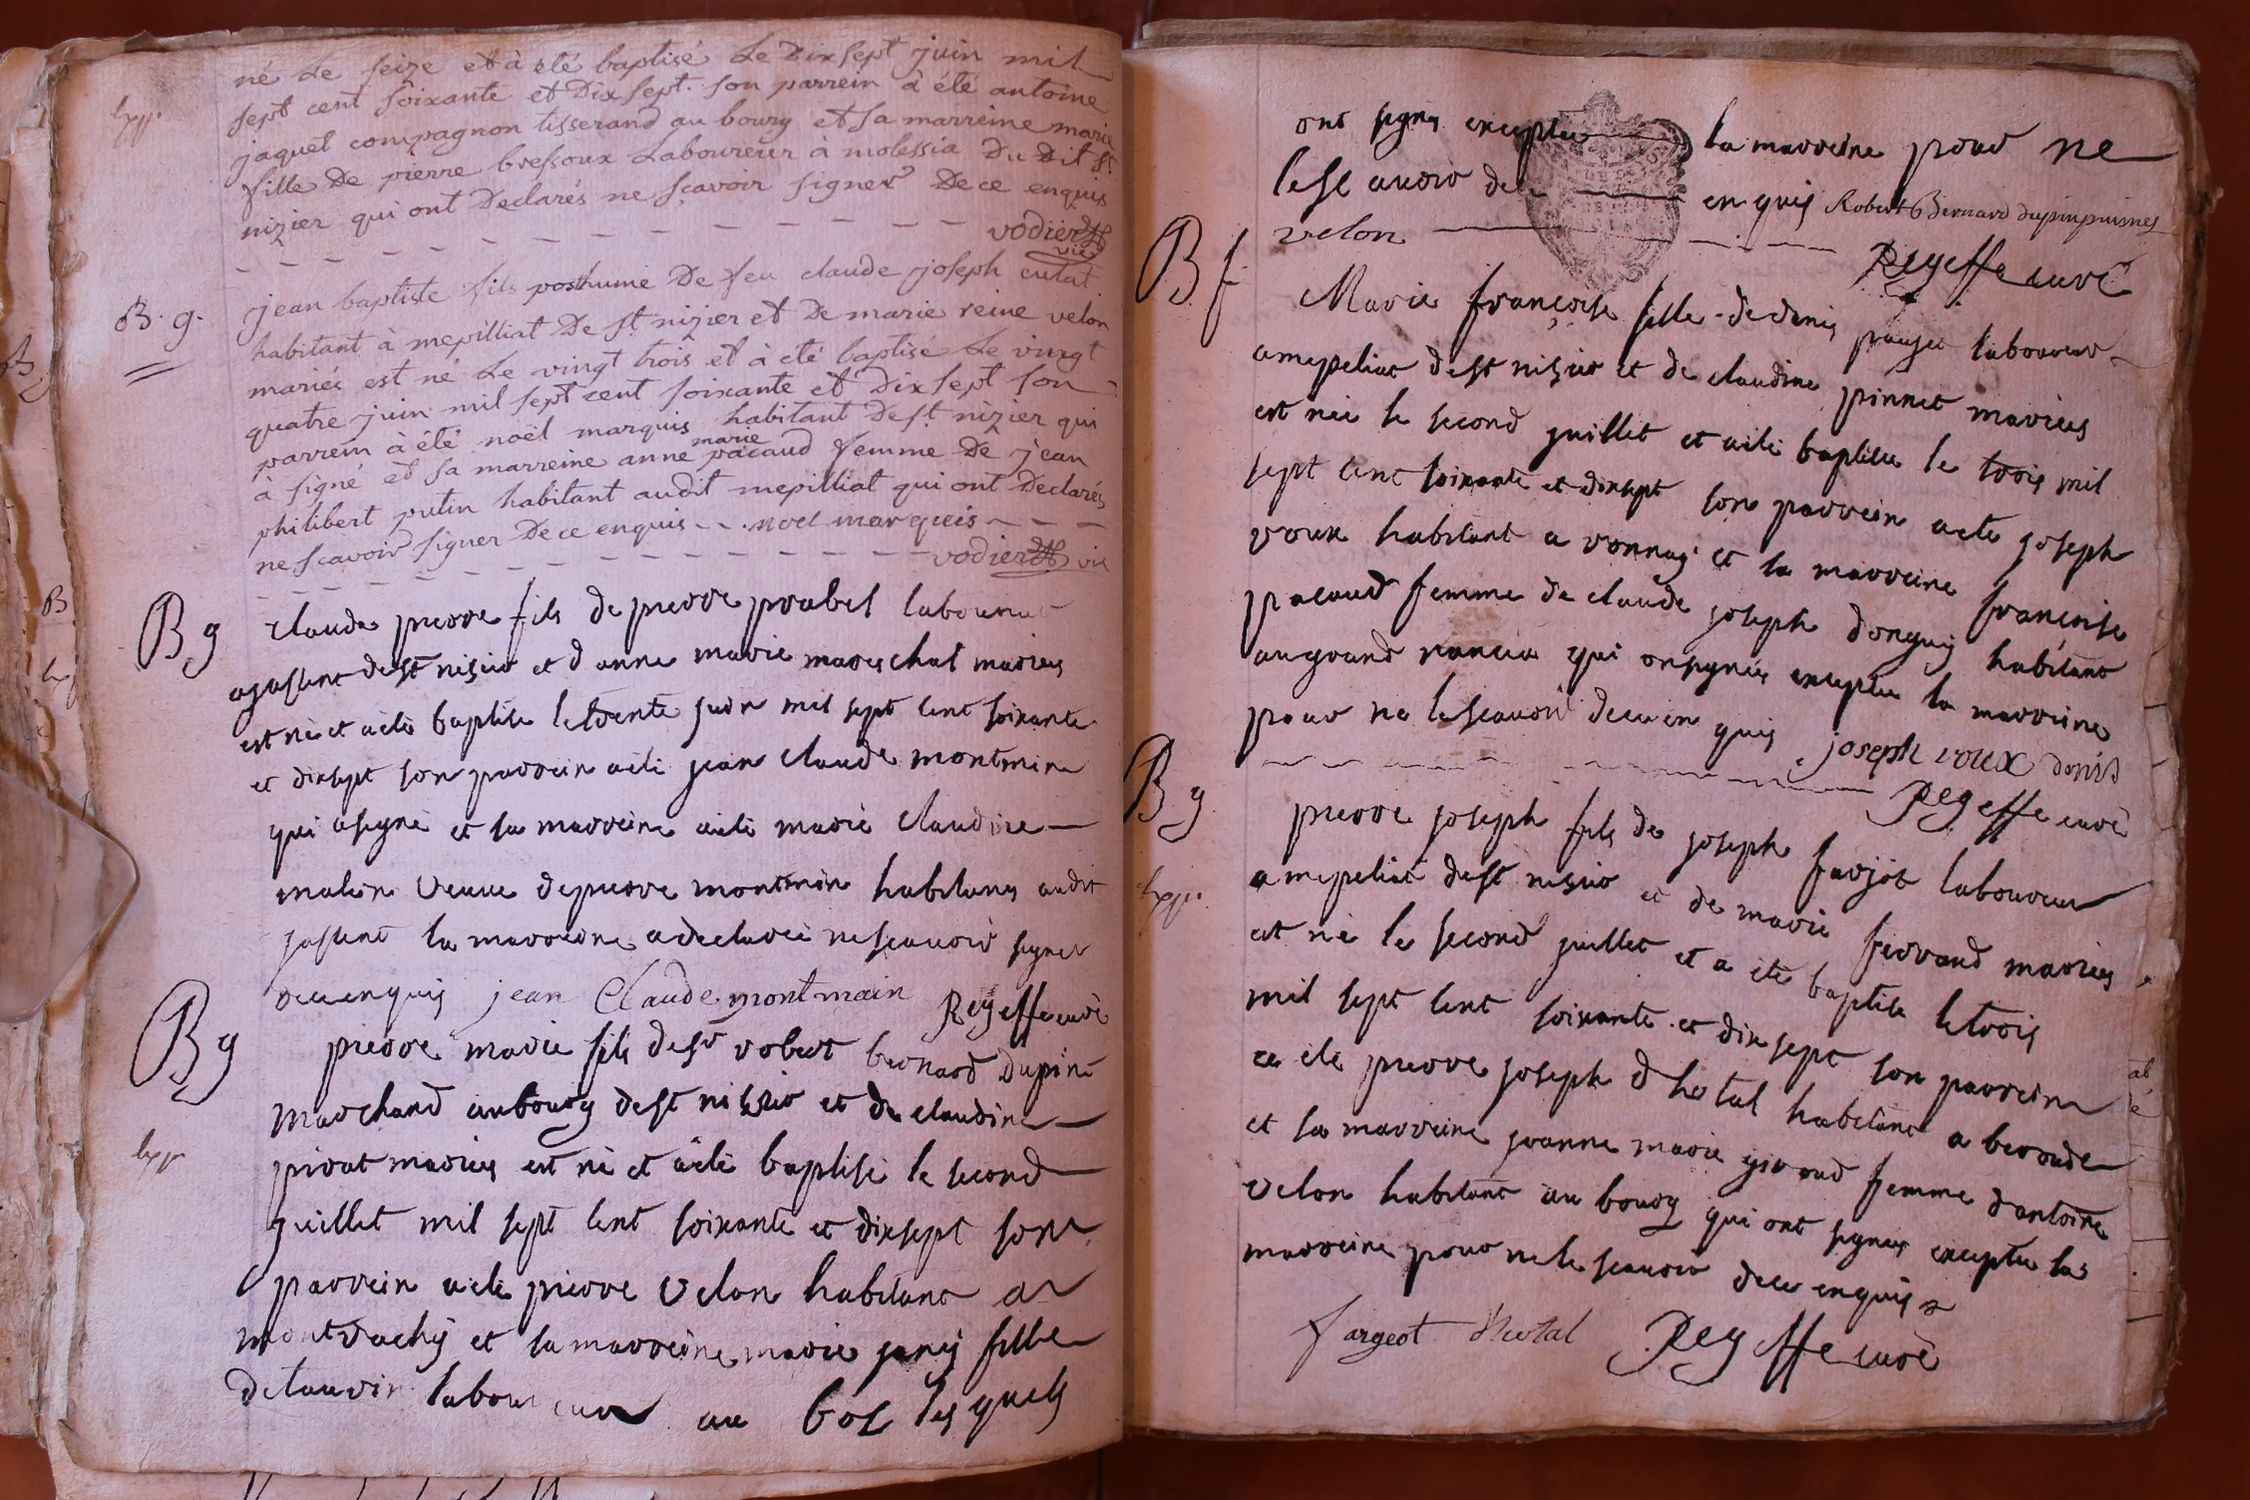 né Le seize et à été baptisé Le Dixsept juin mil
sept cent soixante et Dixsept. son parrein à été antoine
jaquet compagnon tisserand au bourg et sa marreine marie
fille De pierre bressoux Laboureur a molessia Du Dit st
nizier qui ont Declarés ne sçavoir signer De ce enquis
vodier vic
B. g.
jean baptiste fils posthume De feu claude joseph cutat
habitant à mepilliat De st nizier et De marie reine velon
mariés est né Le vingt trois et à eté baptisé Le vingt
quatre juin mil sept cent soixante et Dixsept son
parrein à été noël marquis habitant De st nizier qui
à signé et sa marreine anne marie pacaud femme De jean
philibert putin habitant audit mepilliat qui ont Declarés
ne scavoir signer De ce enquis - - . noel marquis - - -
vodier vic
B g
claude pierre fils de pierre probel laboureur
ajassent de st nisier et d anne marie mareschal mariés
est né et a été baptise le trente juin mil sept cent soixante
et dixsept son parrein a été jean claude montmin
qui a signé et sa marreine a été marie claudine
malin veuve de pierre montmin habitans audit
jassent la marreine a declaree ne scavoir signer
de ce enquis jean Claude montmain Regeffe curé
B g
pierre marie fils de sr robert bernard dupin
marchand au bourg de st nisier et de claudine
privat mariés est né et a été baptisé le second
juillet mil sept cent soixante et dixsept son
parrein a été pierre velon habitant a
montrachy et la marreine marie jany fille
de taurin laboureur au bos les quels
ont signés exceptée la marreine pour ne
le sc avoir de ce enquis Robert Bernard dupin
velon Regeffe curé
B f
Marie françoise fille de denis paujer laboureur
a mepeliat de st nisier et de claudine pinnet mariés
est née le second juillet et a été baptisée le trois mil
sept cent soixante et dixsept son parrein a été joseph
voux habitant a vonnay et la marreine françoise
pacaud femme de claude joseph donguy habitant
au grand rancia qui on signés exceptée la marreine
pour ne le scavoir de ce en quis joseph voux
Regeffe curé
B g
pierre joseph fils de joseph farjot laboureur
a mepeliat de st nisier et de marie ferrand mariés
est né le second juillet et a été baptise le trois
mil sept cent soixante et dix sept son parrein
a été pierre joseph d hotal habitant a beroude
et sa marreine jeanne marie giroud femme d antoine
velon habitant au bourg qui ont signés exceptée la
marreine pour ne le scavoir de ce enquis
fargeot Dhotal Regeffe curé